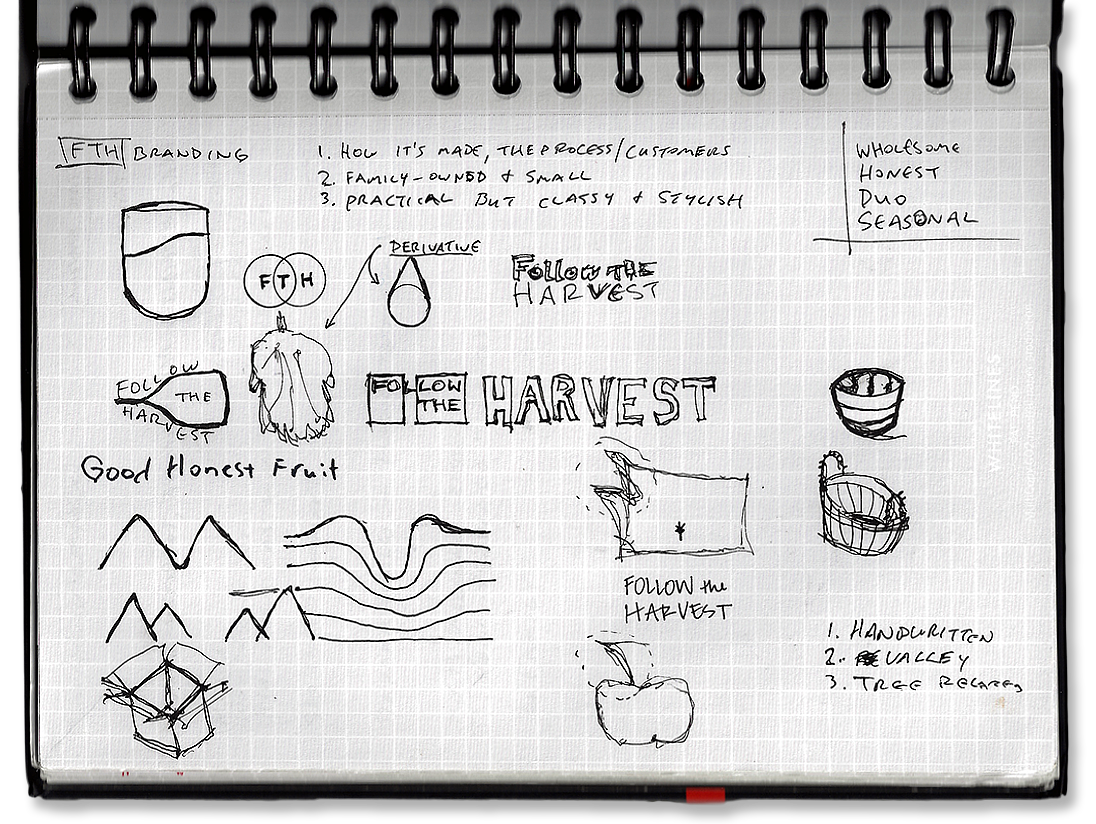 FTH BRANDING
1. HOW IT'S MADE, THE PROCESS/CUSTOMERS
2. FAMILY-OWNED & SMALL
3. PRACTICAL BUT CLASSY & STYLISH
WHOLESOME
HONEST
DUO
SEASONAL
DERIVATIVE
F T H
FOLLOW THE
HARVEST
FOLLOW
THE
HARVEST
FOLLOW
THE
HARVEST
Good Honest Fruit
FOLLOW the
HARVEST
1. HANDWRITTEN
2. VALLEY
3. TREE RELATED